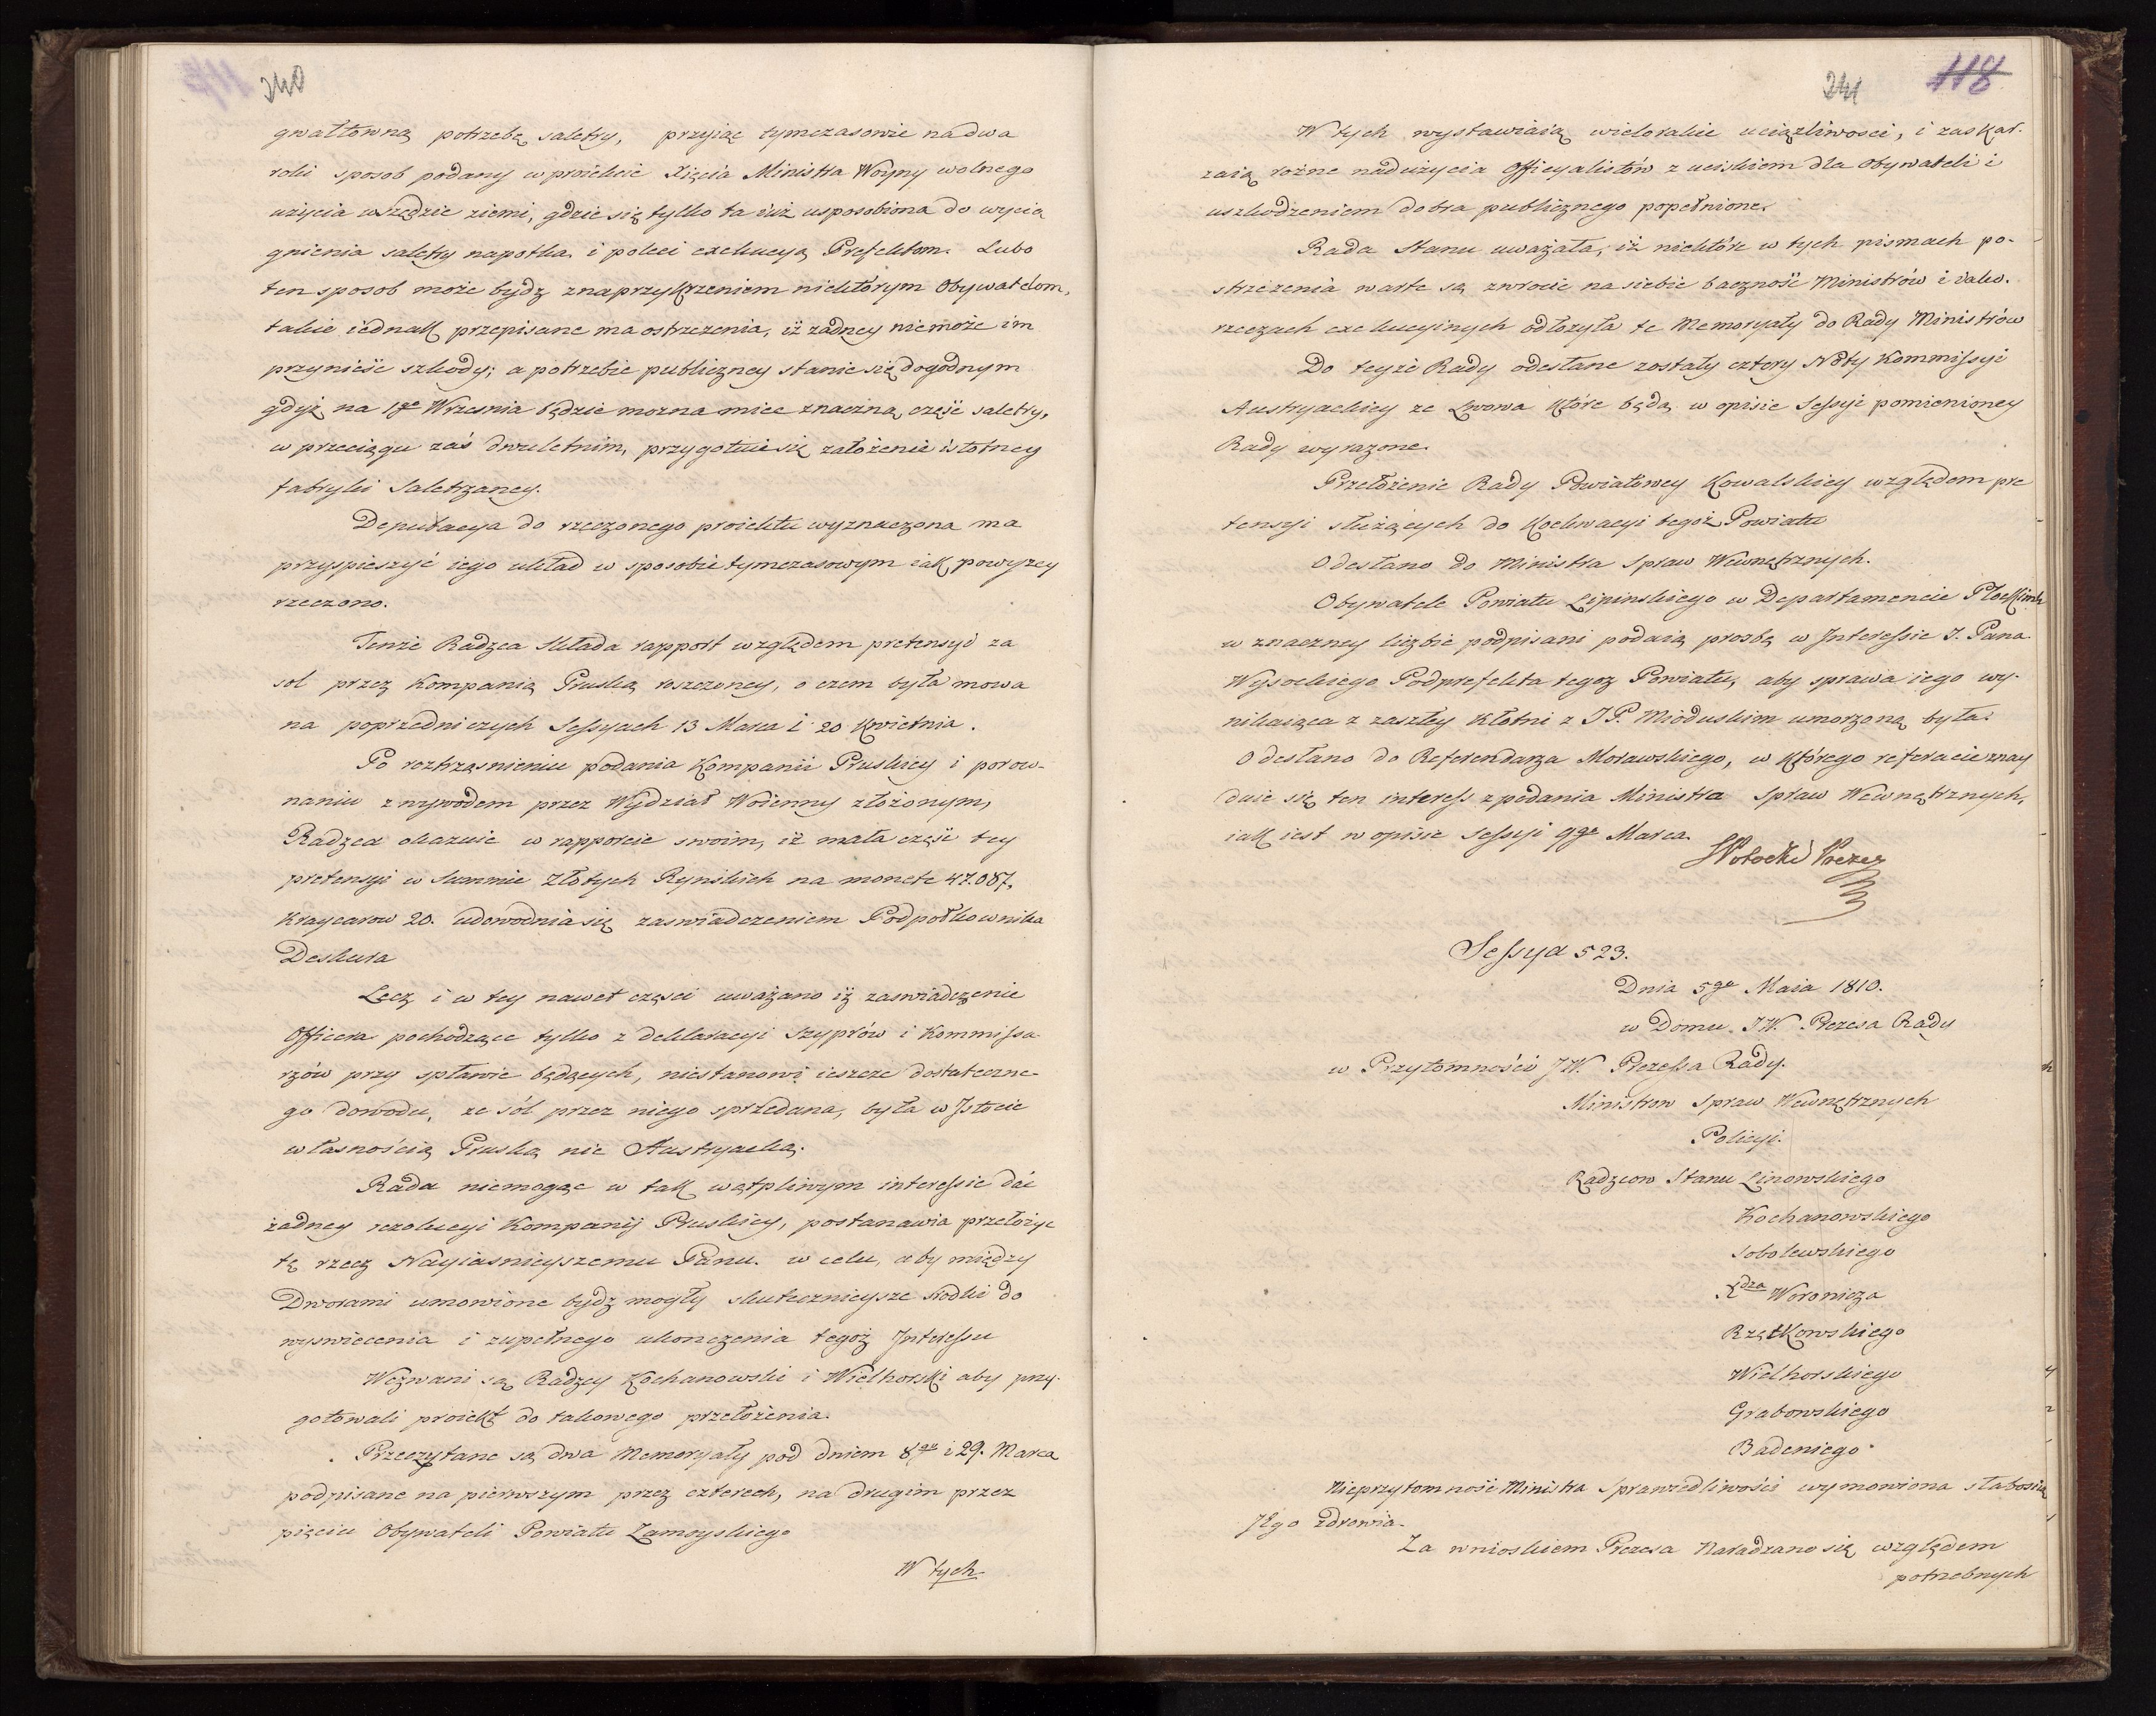 240
gwałtowną potrzebę saletry, przyiąć tymczasowie na dwa
roki sposob podany w proiekcie Xięcia Ministra Woyny wolnego
użycia wszędzie ziemi, gdzie się tylko ta iuż usposobiona do wycią
gnienia saletry napotka i poleci exekucyą Prefektom. Lubo
ten sposob może bydz z naprzykrzeniem niektórym Obywatelom,
takie iednak przepisane ma ostrzeżenia, iż żadney nie może im
przynieść szkody; a potrzebie publiczney stanie się dogodnym
gdyż na 1go Września będzie mozna miec znaczną część saletry,
w przeciągu zaś dwuletnim, przygotuie się założenie istotney
fabryki Saletrzaney.
Deputacya do rzeczonego proiektu wyznaczona ma
przyspieszyć iego układ w sposobie tymczasowym iak powyzey
rzeczono.
Tenże Radzca składa rapport względem pretensyi za
sol przez Kompanią Pruską roszczoney, o czem była mowa
na poprzedniczych Sessyach 13 Marca i 20 Kwietnia.
Po roztrząsnieniu podania Kompanii Pruskiey i porow-
naniu z wywodem przez Wydział Woienny złożonym,
Radzca okazuie w rapporcie swoim, iż mała część tey
pretensyi w Summie Złotych Ryńskich na monete 47.087.
Kraycarow 20. udowodnia się zaswiadczeniem Podpołkownika
Deskura
Lecz i w tey nawet części uważano iż zaswiadczenie
Officera pochodzące tylko z deklaracyi Szyprów i Kommissa
rzów przy spławie będących, niestanowi ieszcze dostateczne-
go dowodu, ze sól przez niego sprzedana, była w Istocie
własnością Pruską nie Austryacką.
Rada niemogąc w tak wątpliwym interessie dać
żadney rezolucyi Kompanij Pruskiey, postanawia przełożyc
tę rzecz Nayiasnieyszemu Panu. w celu, aby między
Dworami umowione bydz mogły skutecznieysze srodki do
wyswiecenia i zupełnego ukonczenia tegoż Interessu
Wezwani są Radzcy Kochanowski i Wielhorski aby przy-
gotowali proiekt do takowego przełożenia.
Przeczytane są dwa Memoryały pod dniem 8go i 29. Marca
podpisane na pierwszym przez czterech, na drugim przez
pięciu Obywateli Powiatu Zamoyskiego
W tych
241 118
W tych wystawiaią wielorakie uciązliwosci, i zaskar-
zaią rożne nadużycia Officyalistów z uciskiem dla Obywateli i
uszkodzeniem dobra publicznego popełnione.
Rada Stanu uważała, iż niektóre w tych pismach po-
strzeżenia warte są zwrocic na siebie baczność Ministrów i iako
rzeczach exekucyinych odłożyła te Memoryały do Rady Ministrów
Do teyże Rady odesłane zostały cztery Noty Kommissyi
Austryackiey ze Lwowa które będą w opisie Sessyi pomienioney
Rady wyrazone.
Przełożenie Rady Powiatowey Kowalskiey względem pre
tensyi służących do Kochwacyi tegoż Powiatu
Odesłano do Ministra Spraw Wewnętrznych.
Obywatele Powiatu Lipinskiego w Departamencie Płockim
w znaczney liczbie podpisani podaią prozbę w Interessie J. Pana
Wysockiego Podprefekta tegoz Powiatu, aby sprawa iego wy-
nikaiąca z zaszłey kłotni z JP. Mioduskim umorzoną była.
Odesłano do Referendarza Morawskiego, w którego referacie znay
duie się ten interess z podania Ministra Spraw Wewnętrznych,
iak iest w opisie Sessyi 9go Marca.
SPotocki Prezes
Sessya 523.
Dnia 5go Maia 1810.
w Domu JW. Prezesa Rady
w Przytomności JW. Prezessa Rady.
Ministrow Spraw Wewnętrznych
Policyi.
Radzcow Stanu Linowskiego
Kochanowskiego
Sobolewskiego
Xdza Woronicza
Rzętkowskiego
Wielhorskiego
Grabowskiego
Badeniego
Nieprzytomność Ministra Sprawiedliwości wymowiona słabością
JEgo zdrowia.
Za wnioskiem Prezesa Naradzano się względem
potrzebnych